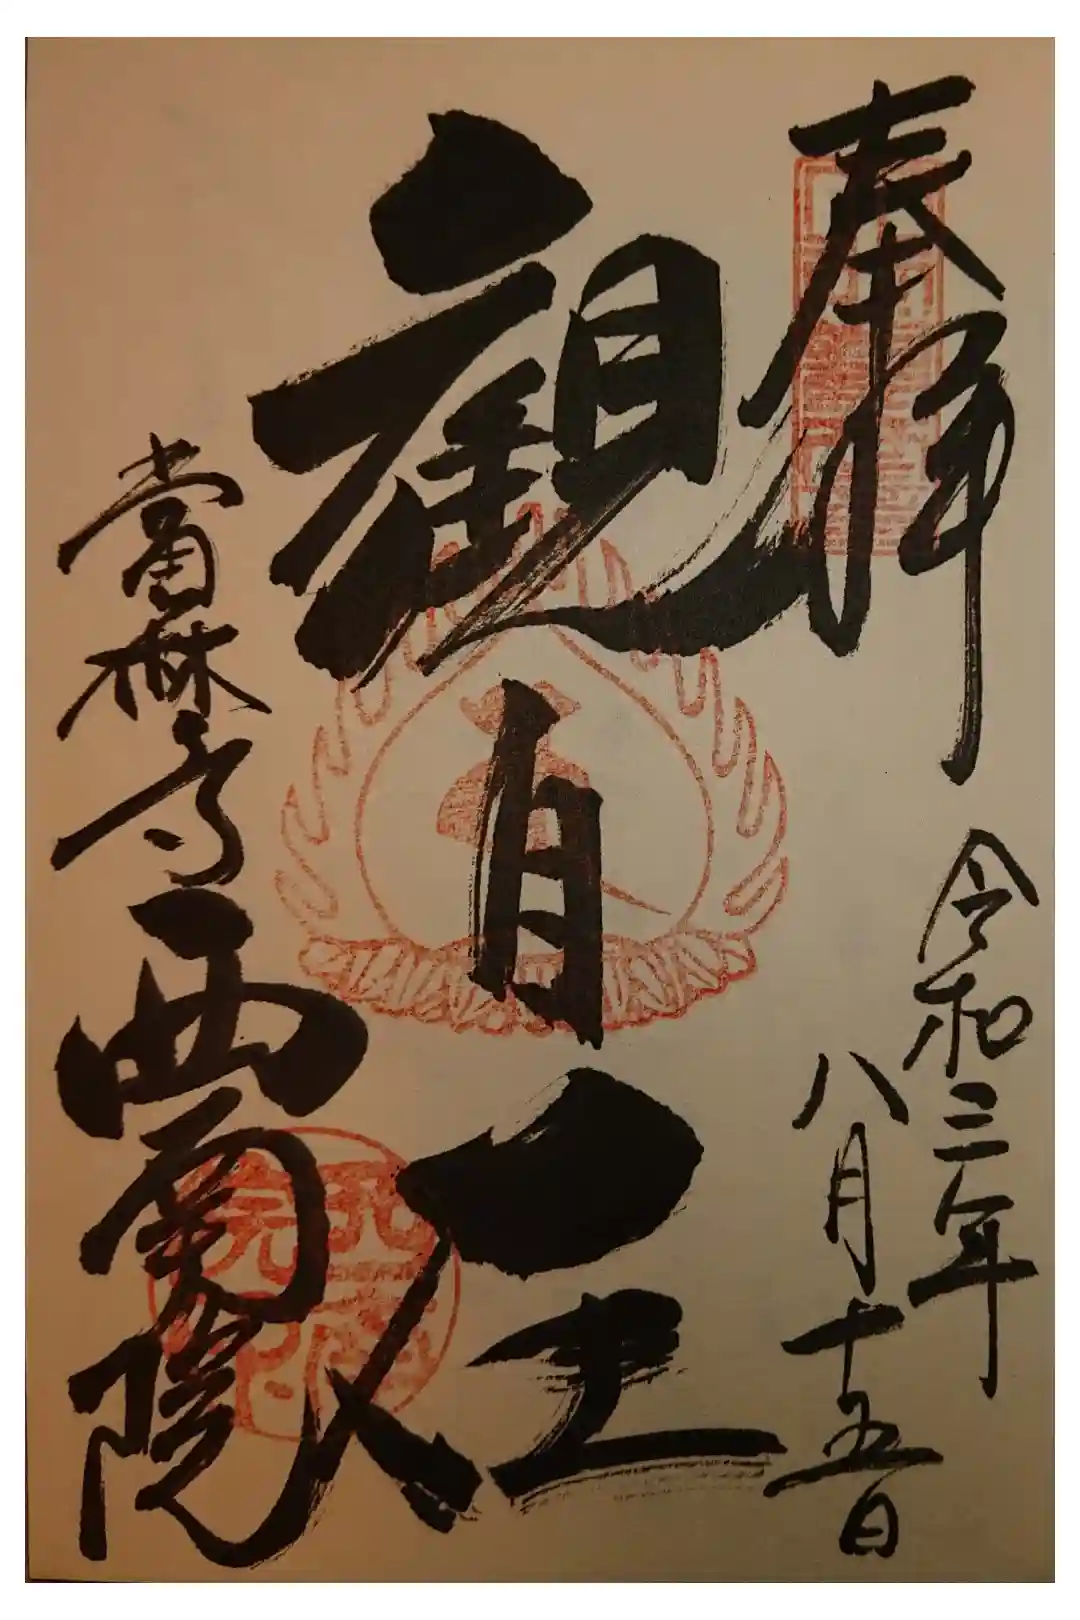 奉拝
令和三年
八月十五日
観自在
當麻寺西南院